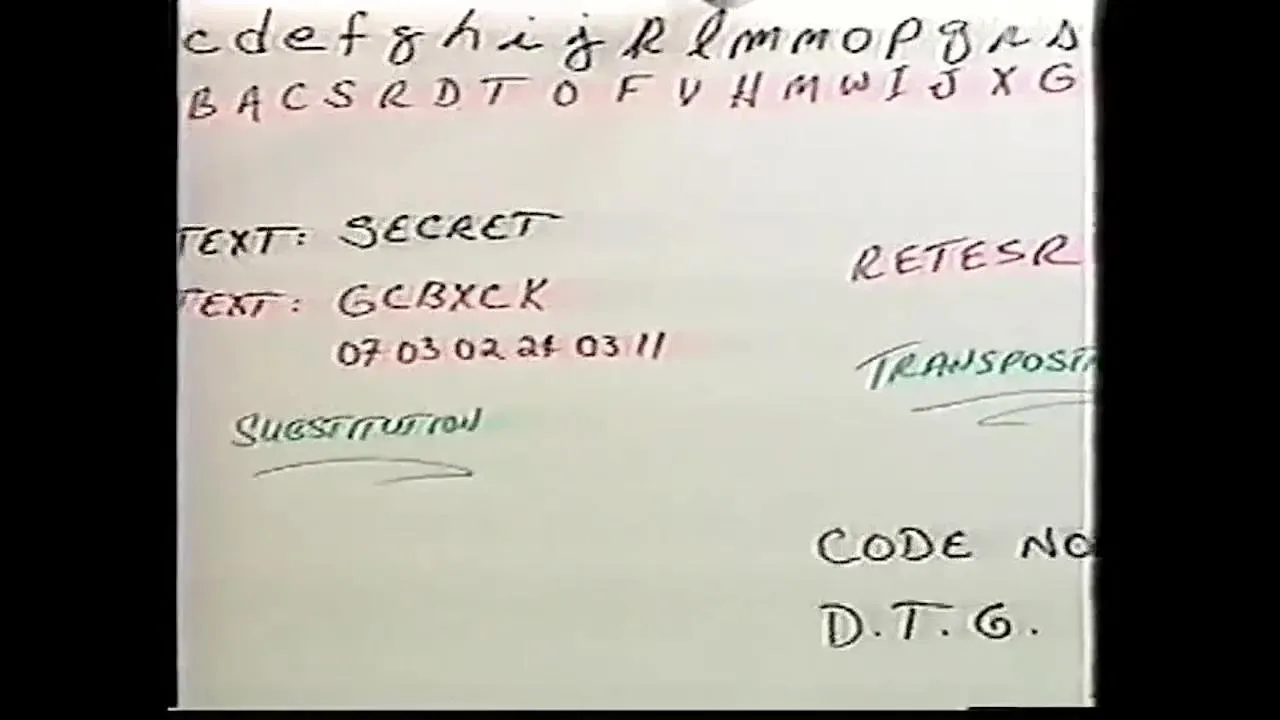 c d e f g h i j k l m n o p q r s
B A C S R D T O F V H M W I J X G
TEXT: SECRET
RETESR
TEXT: GCBXCK
07 03 02 24 03 11
TRANSPOSIT
SUBSTITUTION
CODE NO
D.T.G.